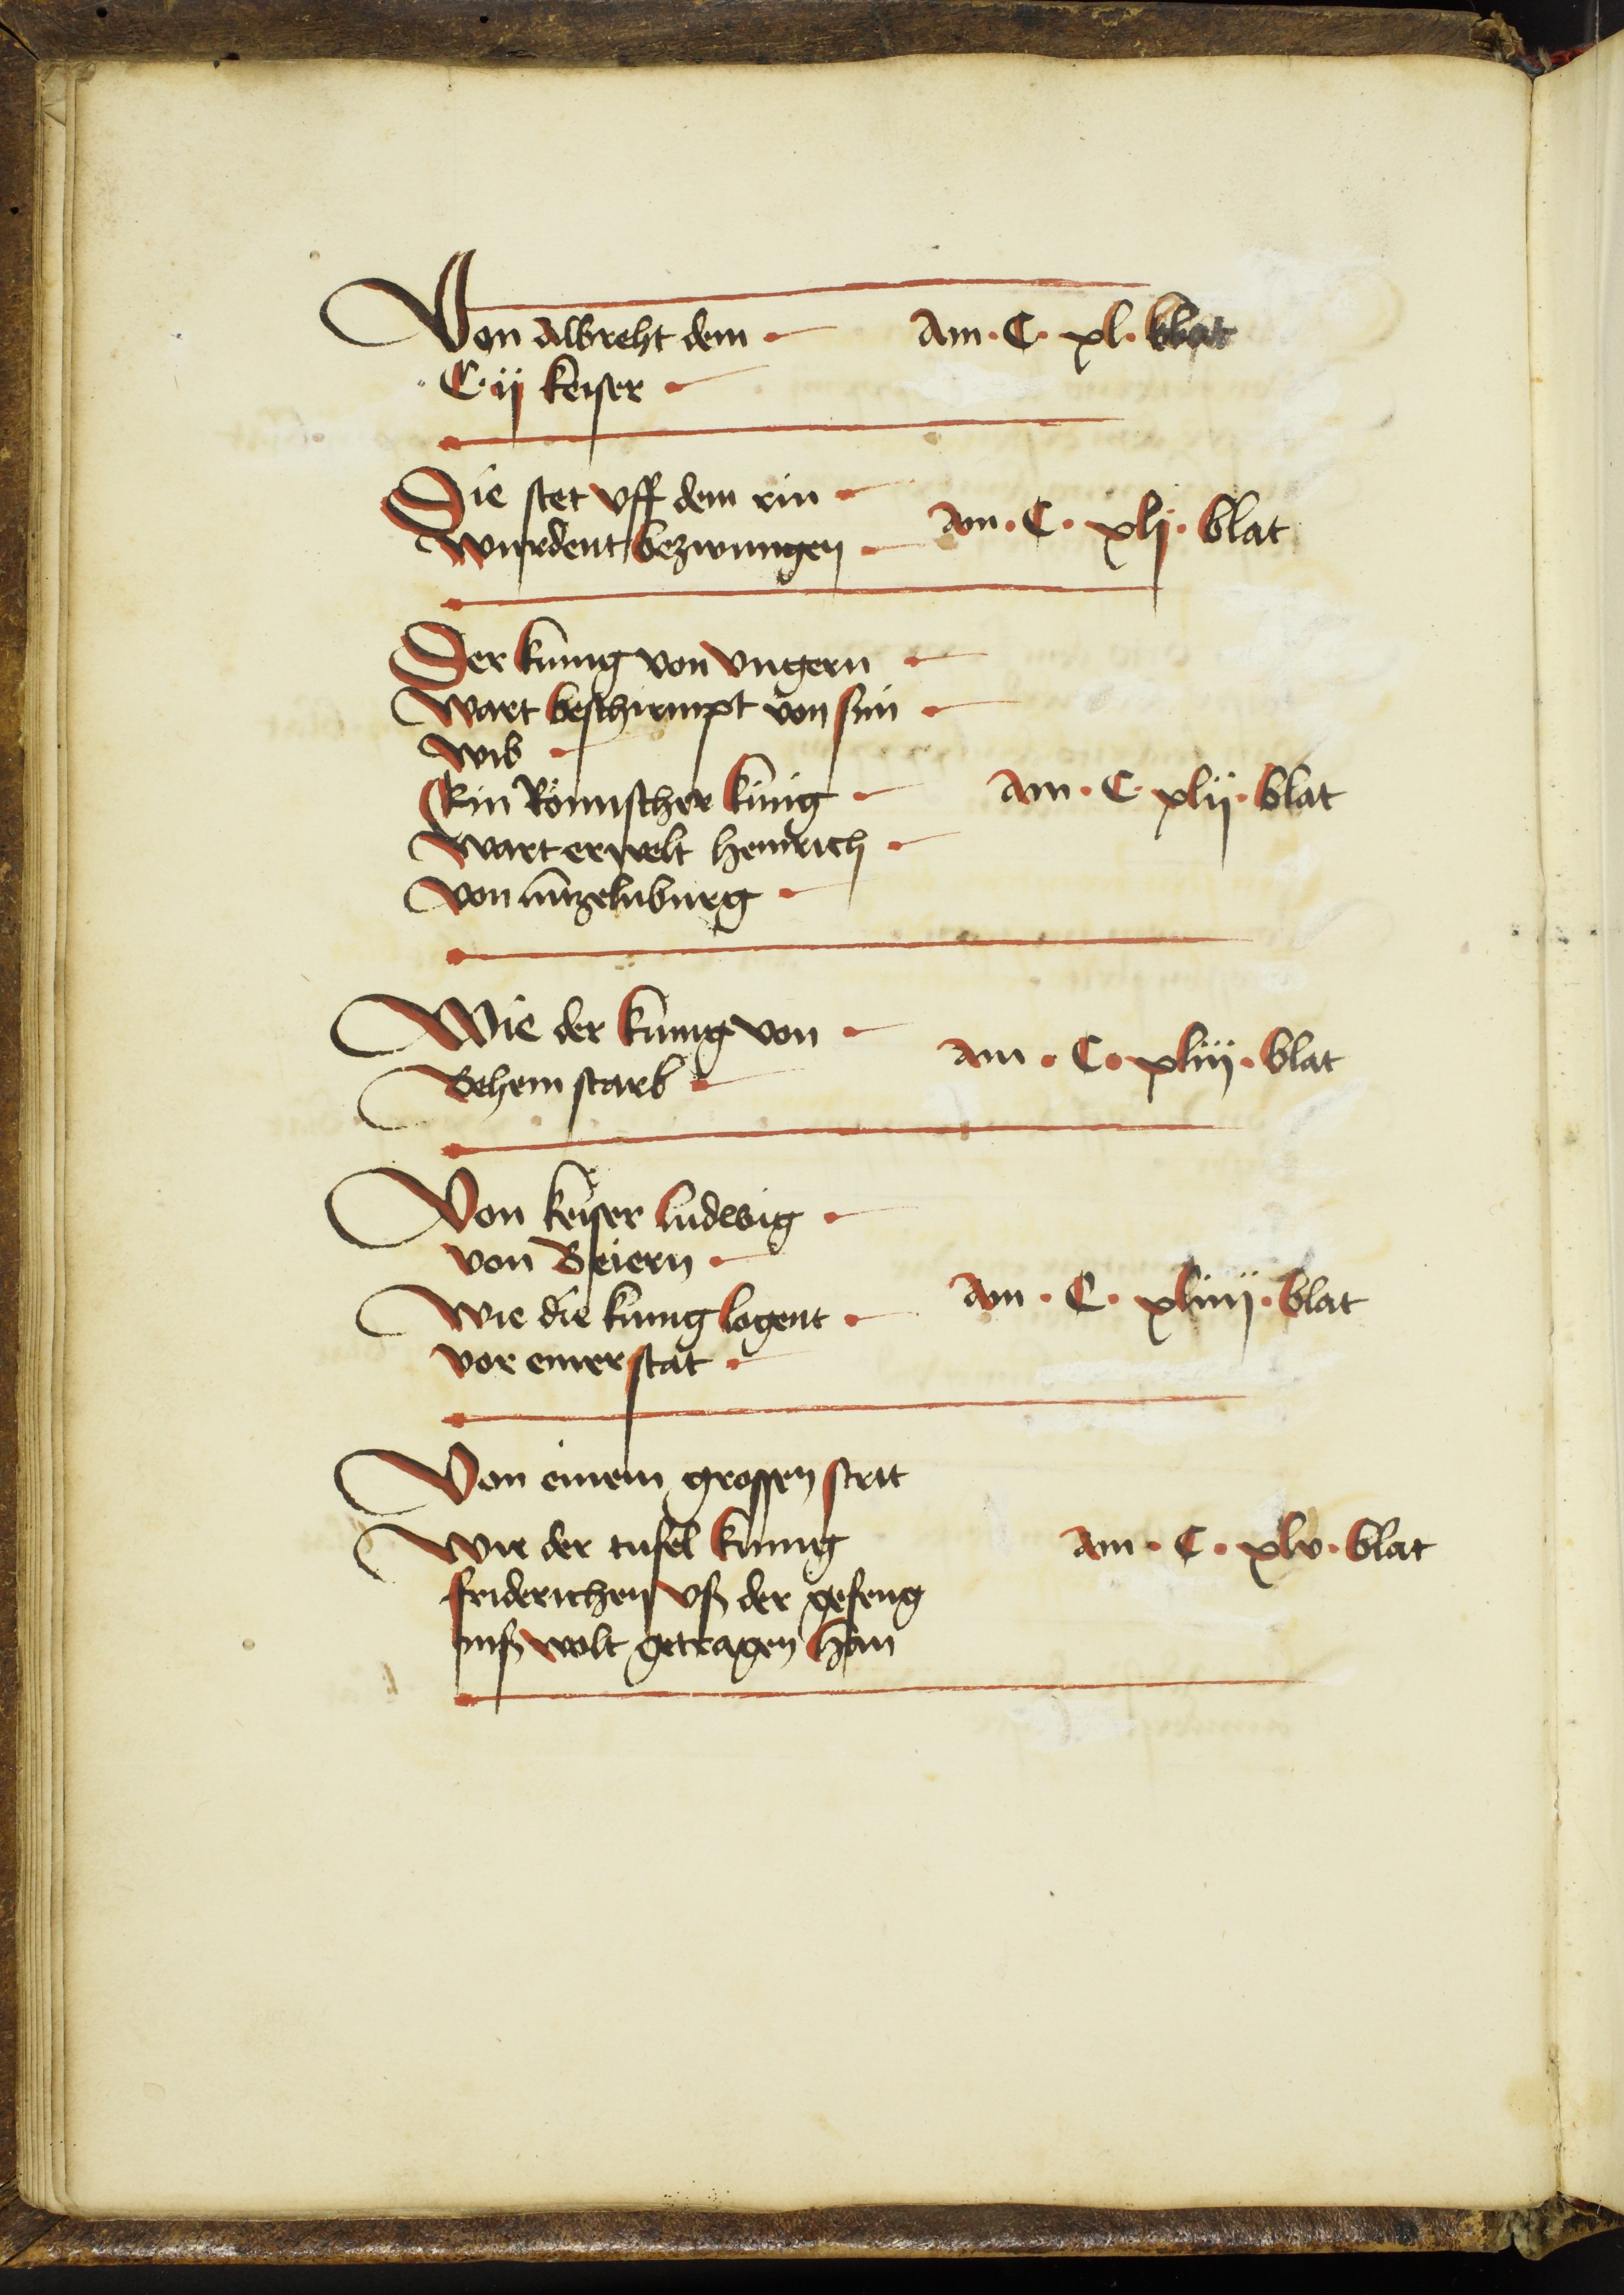 Von Albreht dem Am · C · xl · blat
C · ij keiser
Die stet vff dem rin
wurdent bezwungen Am · C · xlj · blat
Der kúnig von vngern
wart beschirmpt von sim
wib
Ein Römischer kúnig Am · C xlij · blat
wart erwelt heinrich
von lútzelnburg
Wie der kúnig von
Behem starb Am · C · xliij · blat
Von keiser ludwig
von Beiern
Wie die kúnig logent Am · C · xliiij · blat
vor einer stat
Von einem grossen strit
Wie der tufel kúnig Am · C · xlv · blat
friderichen vß der gefeng
niß wolt getragen han